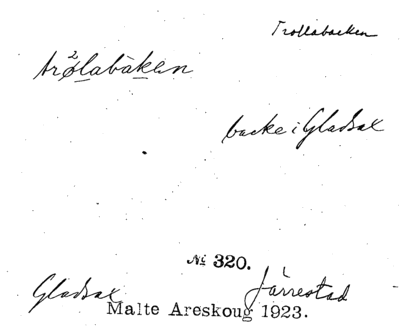 Trollabacken
trølabàken
backe i Gladsax
№ 320.
Gladsax Järrestad
Malte Areskoug 1923.